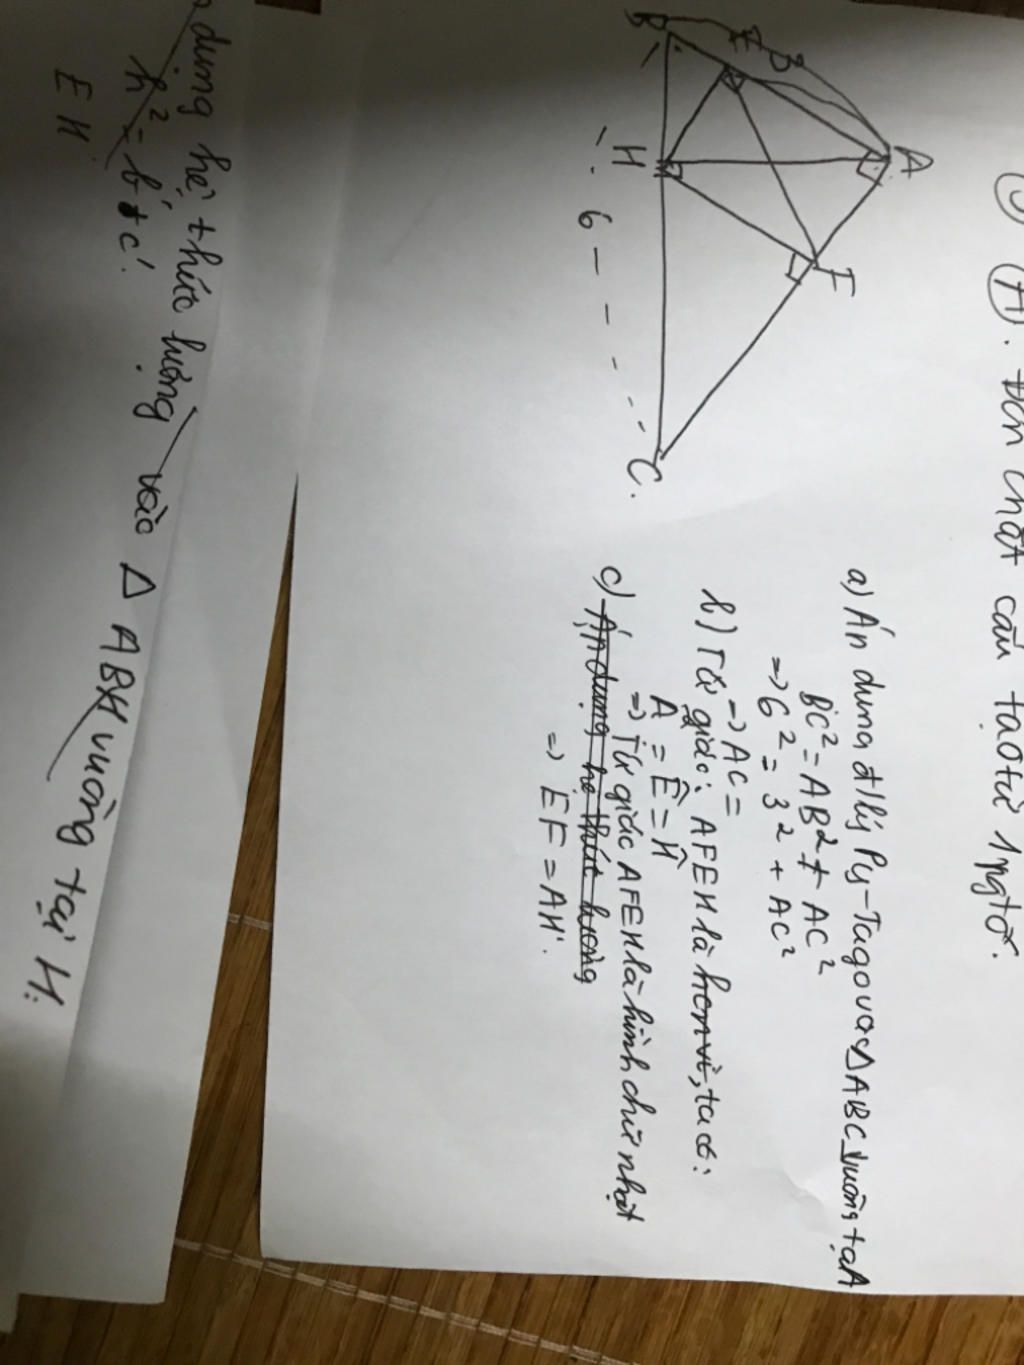 A. Đơn chất cấu tạo từ 1 ngtố.
A
B
E
B
F
H
6
C.
a) Áp dụng đ/lý Py-Tago vào Δ ABC vuông tạA
BC² = AB² + AC²
=> 6² = 3² + AC²
=> AC =
b) Tứ giác: AFEH là hcn vì, ta có:
A = Ê = Ĥ
=> Tứ giác AFEH là hình chữ nhật
c) Áp dụng hệ thức lượng
=> EF = AH.
dụng hệ thức lượng vào Δ ABH vuông tại H:
h² = b' + c'.
E H